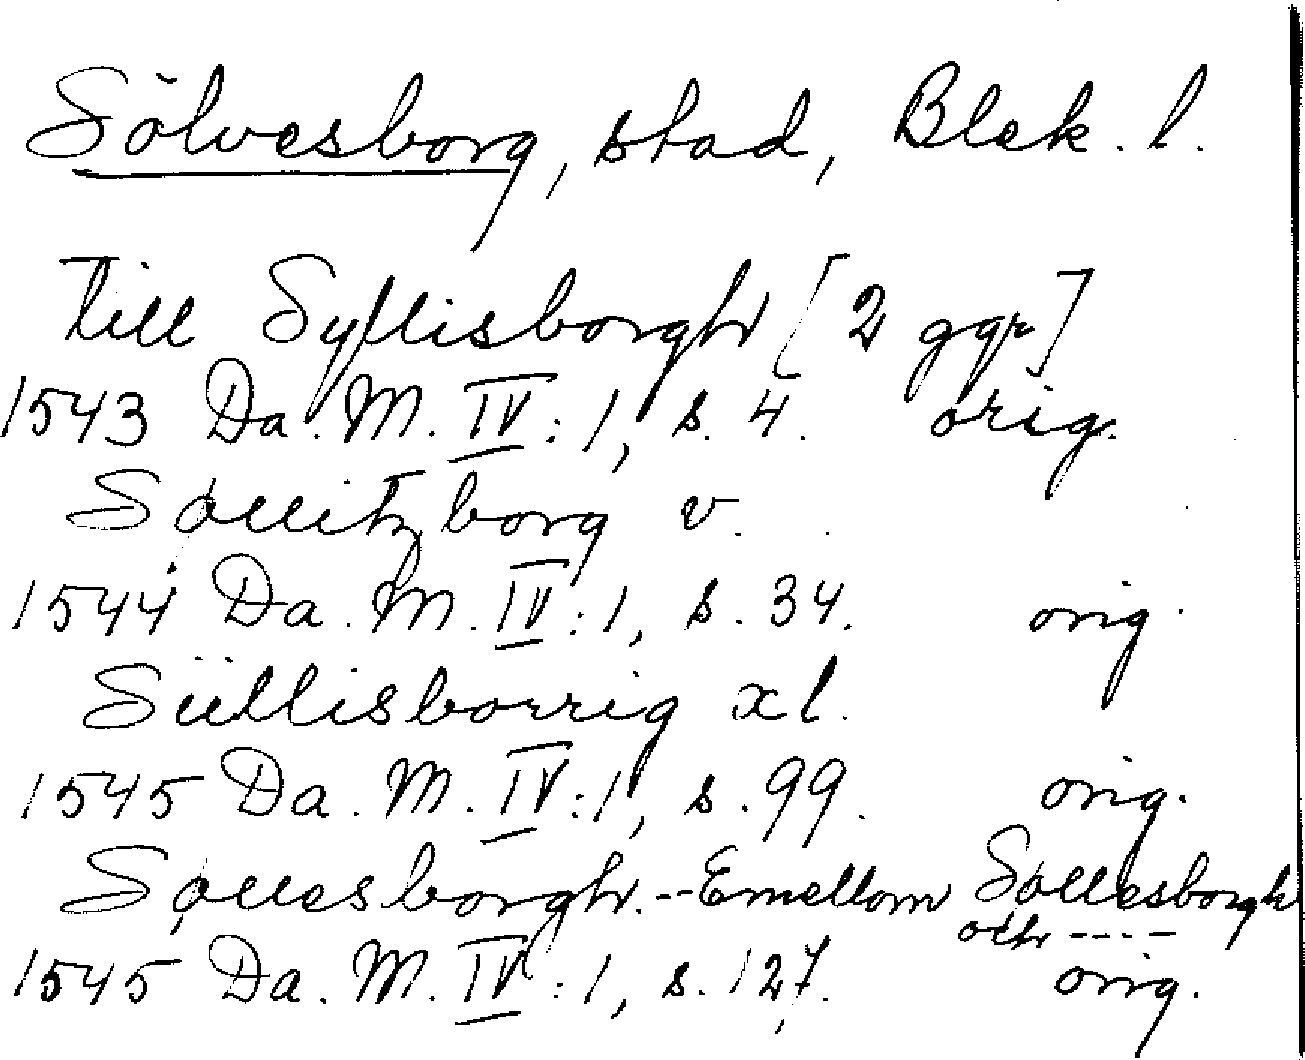 Sölvesborg, stad, Blek. l.
till Syllisborgh [2 ggr]
1543 Da. M. IV:1, s. 4. orig.
Søuitzborg v.
1544 Da. M. IV:1, s. 34. orig.
Süllisborrig xl.
1545 Da. M. IV:1, s. 99. orig.
Søuesborgh. -- Emellom Søllesborgh
och ----
1545 Da. M. IV:1, s. 127. orig.